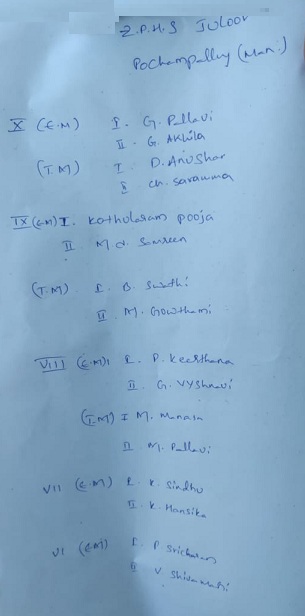 Z.P.H.S Juloor
Pochampally (Man.)
X (E.M) I. G. Pallavi
II - G. Akhila
(T.M) I. D. Anushar
II ch. Saravuma
IX (E.M) I. Katholaram pooja
II. Md. Samreen
(T.M). I. B. Swathi
II. M. Gowthami
VIII (E.M) I. P. Keerthana
II. G. Vyshnavi
(T.M) I M. Manasa
II M. Pallavi
VII (E.M) I. K. Sindhu
II. K. Hansika
VI (EM) I. P Sricharan
II V.